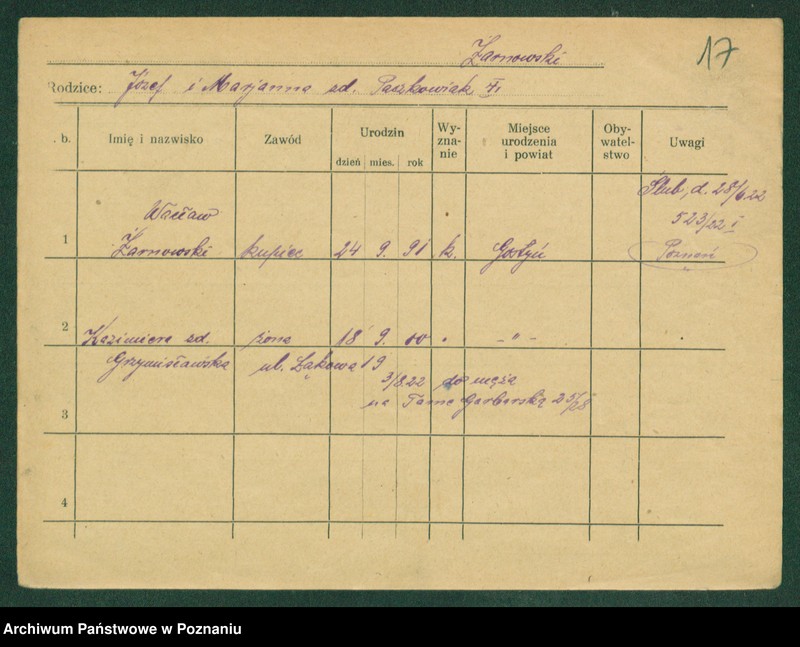 17
Żarnowski
Rodzice: Józef i Marjanna zd. Paczkowiak
l. b. Imię i nazwisko Zawód Urodzin Wyznanie Miejsce urodzenia i powiat Obywatelstwo Uwagi
dzień mies. rok
Ślub, d. 28/6 22
523/22 I
Poznań
1 Wacław
Żarnowski kupiec 24 9. 91 k. Gostyń
2 Kazimiera zd. żona 18 9. 00 " - " -
Grzymisławska ul. Łąkowa 19
3/8 22 do męża
3 na Tamę Garbarską 25/28
4
Archiwum Państwowe w Poznaniu